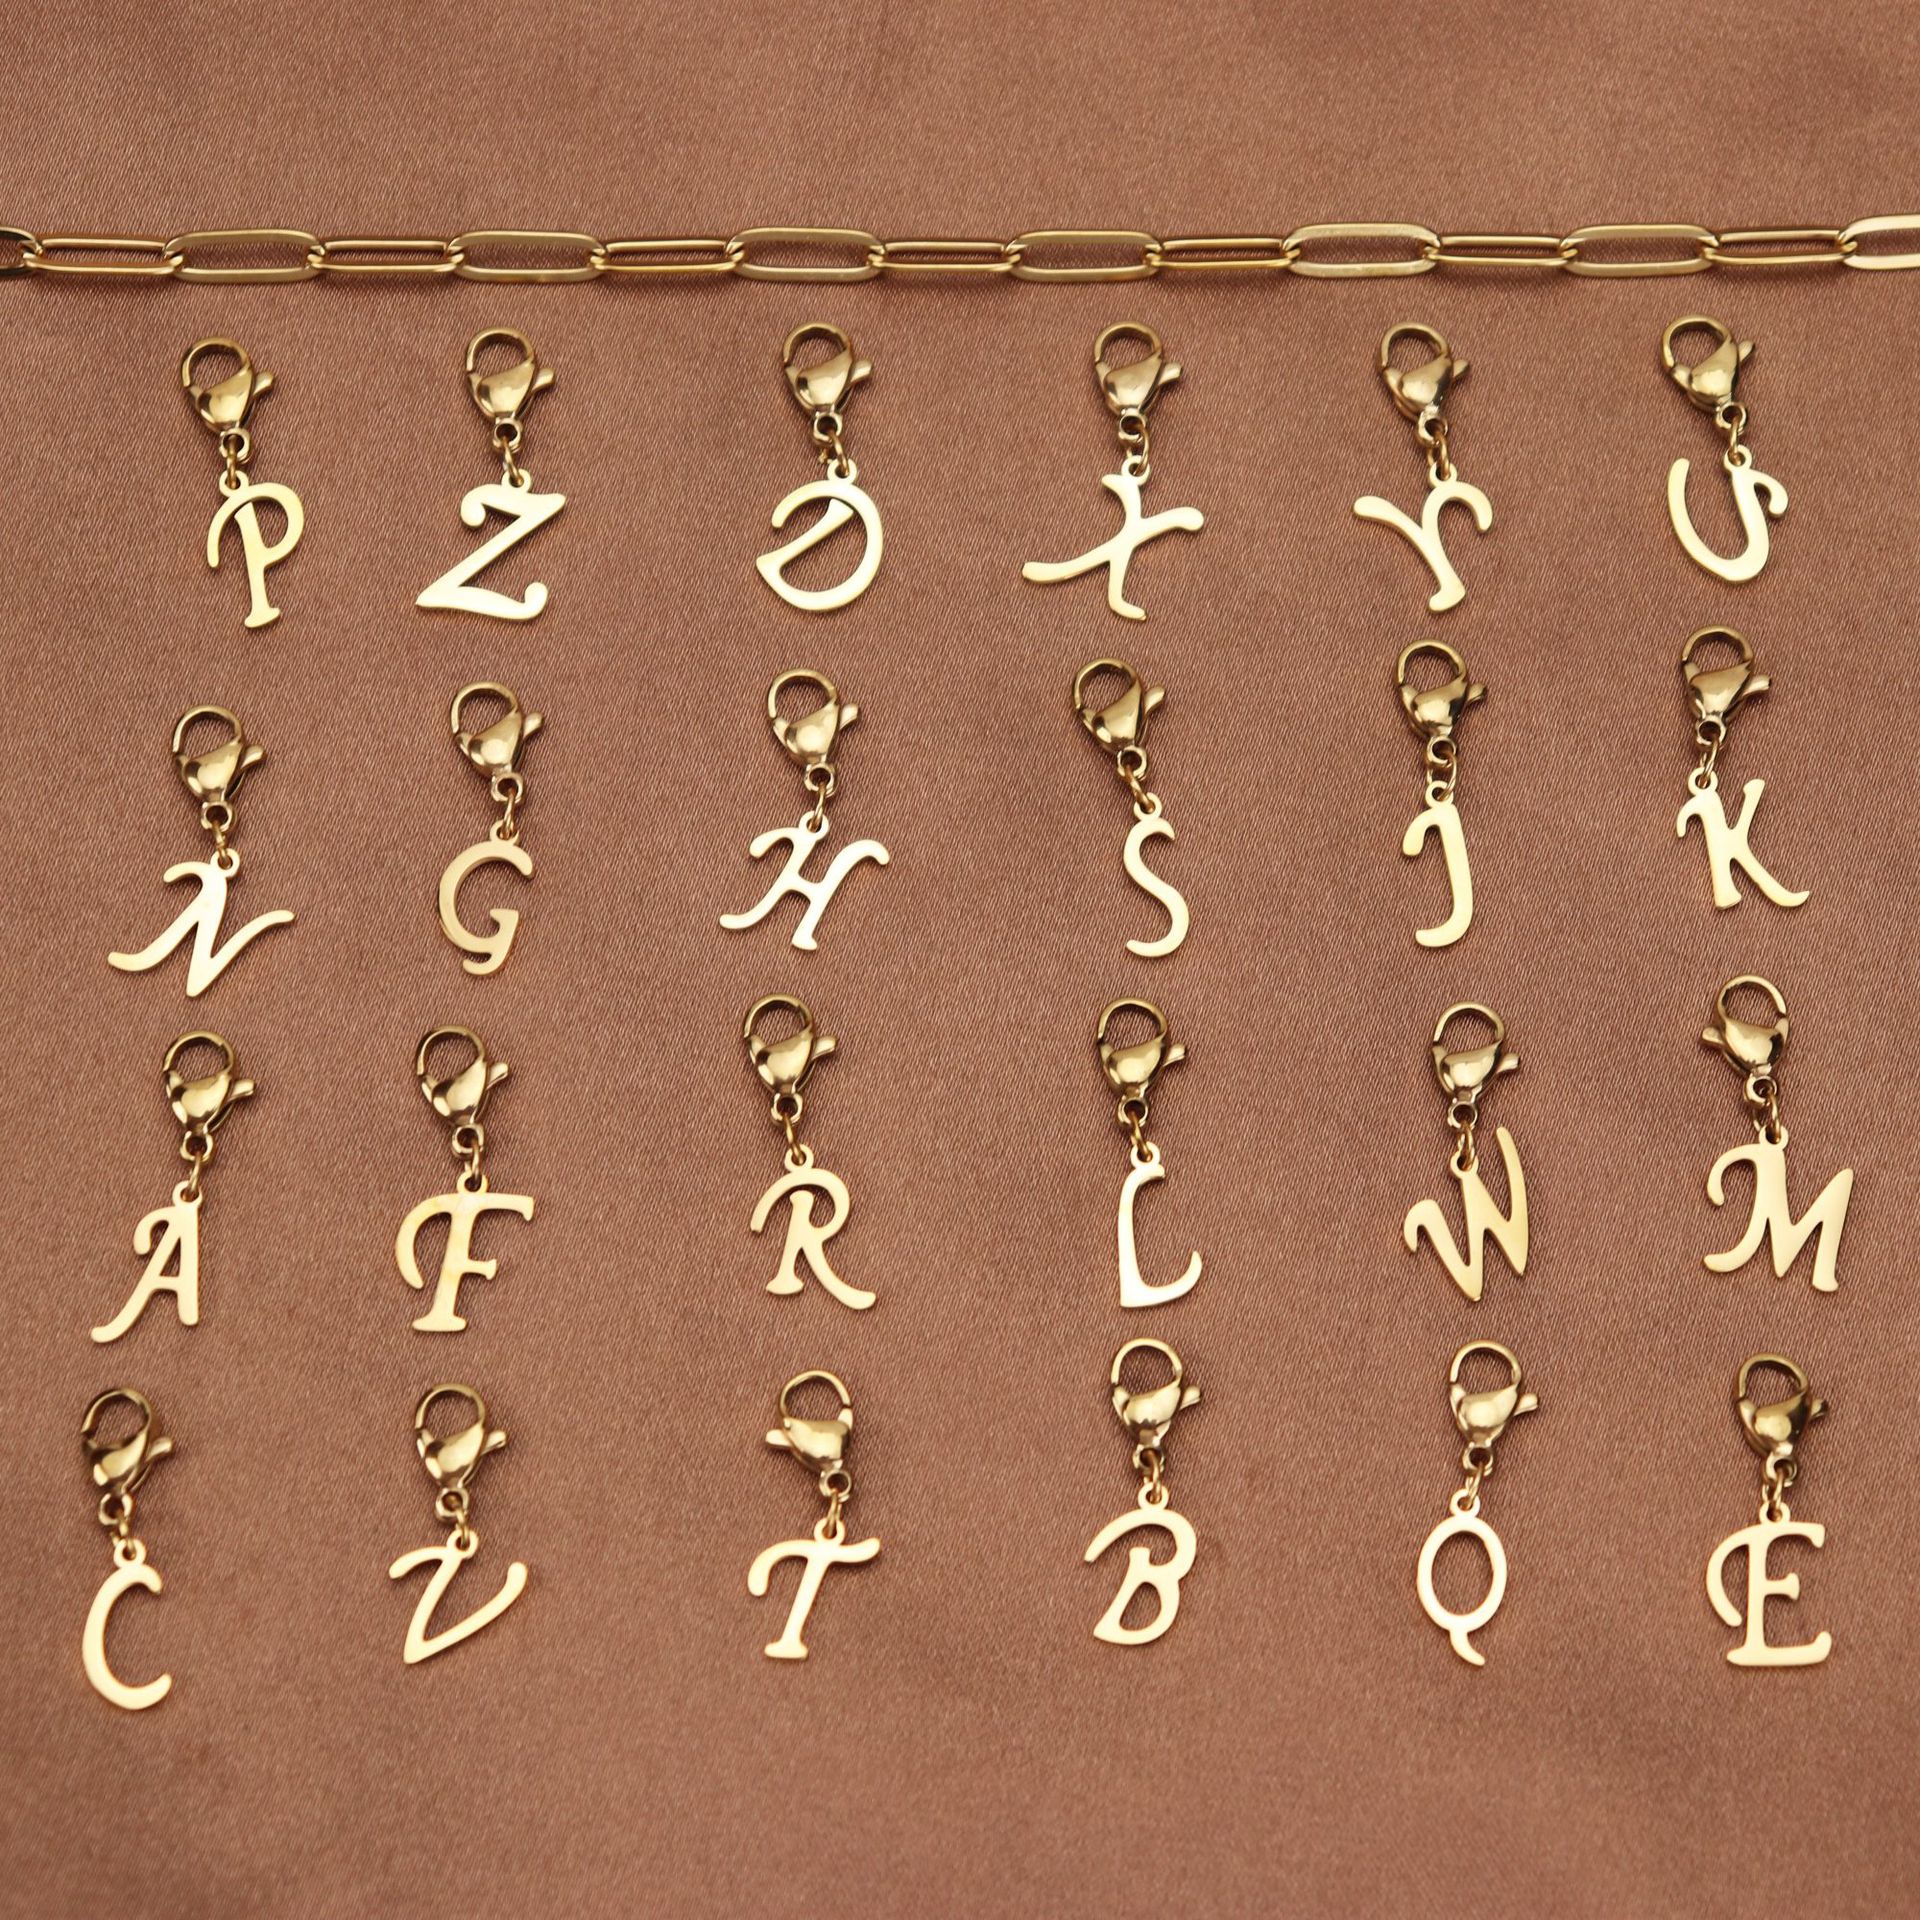 P Z D X Y U
N G H S J K
A F R L W M
C V T B Q E